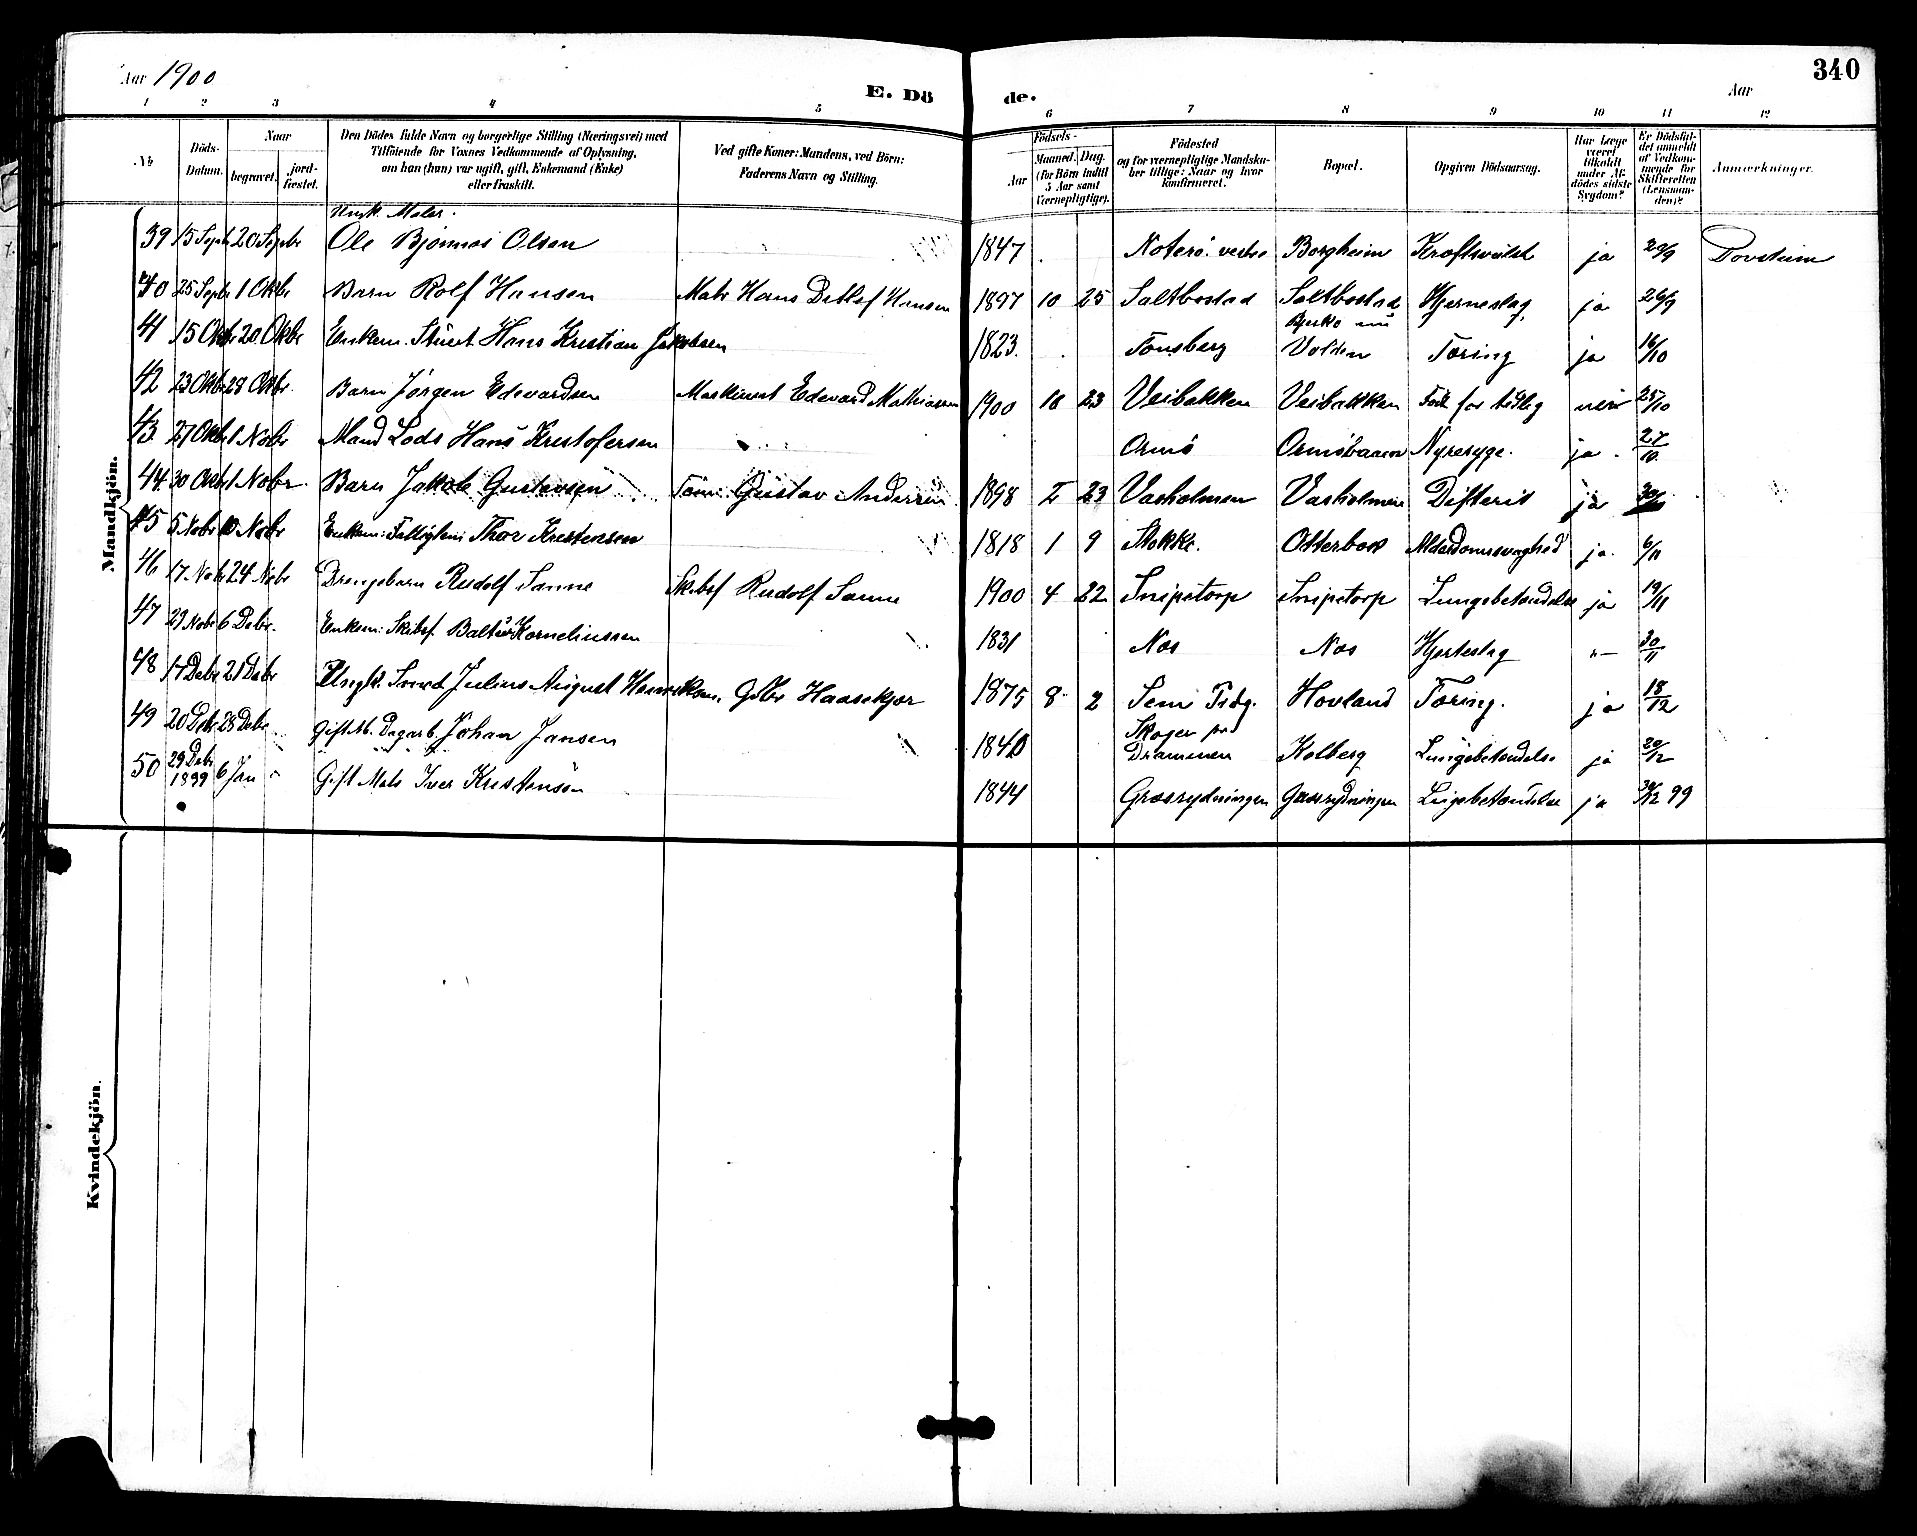 Aar 1900
E. Dö de.
Aar
340
1 2 3 4 5 6 7 8 9 10 11 12
No
Döds-Datum.
Naar
begravet.
jord-fæstet.
Den Dödes fulde Navn og borgerlige Stilling (Næringsvei) med
Tilföiende for Voxnes Vedkommende af Oplysning,
om han (hun) var ugift, gift, Enkemand (Enke)
eller fraskilt.
Ved gifte Koner: Mandens, ved Börn:
Faderens Navn og Stilling.
Födsels-
Aar
Maaned. Dag.
(for Börn indtil
5 Aar samt
Værnepligtige).
Födested
og for værnepligtige Mandska-
ber tillige: Naar og hvor
konfirmeret.
Bopæl.
Opgiven Dödsaarsag.
Har læge
været
tilkaldt
under Af-
dödes sidste
Sygdom?
Er Dödsfal-
det anmeldt
af Vedkom-
mende for
Skifteretten
(Lensman-
den)?
Anmærkninger.
Mandkjön.
39 15 Septr 20 Septbr Ole Bjönnes Olsen 1847 Noterö Borgheim Kræftsvulst ja 20/9
40 25 Septr 1 Oktbr Barn Rolf Hansen Matr Hans Detlef Hansen 1897 10 25 Saltbostad Saltbostad Hjerneslag ja 26/9
41 15 Oktbr 20 Oktbr Enkem. Stuert Hans Kristian Jakobsen 1823 Tonsberg Volden Tæring ja 16/10
42 23 Oktbr 28 Oktbr Barn Jörgen Edevardsen Maskinist Edevard Mathiasen 1900 10 23 Veibakken Veibakken Född for tidlig nei 25/10
43 27 Oktbr 1 Nobr Mand Lods Hans Kristofersen Ormö Nyresyge. ja 27/10
44 30 Oktb 1 Nobr Barn Jakob Gustavsen Töm: Gustav Andersen 1898 2 23 Vasholmen Vasholmen Difterit ja 30/10
45 5 Nobr 10 Nobr Enkem: Thor Kristensen 1818 1 9 Stokke. Otterbæk Alderdomssvaghed ja 6/11
46 17 Nobr 24 Nobr Drengebarn Rudolf Sanne Skibsf Rudolf Sanne 1900 4 22 Snipetorp Snipetorp Lungebetændelse ja 19/11
47 29 Nobr 6 Debr. Enkem: Skibsf. Baltser Korneliussen 1831 Nes Nes Hjerteslag "- 30/11
48 17 Debr 21 Debr Ungk. Smed Julius August Henriksen. Gdbr Haasekjær 1875 8 2 Sem Tsbg. Hovland Tæring. ja 18/12
49 20 Debr 28 Debr Gift M. Dagarb. Johan Jansen 1840 Skoger ved
Drammen Kolberg Lungebetændelse ja 20/12
50 29 Debr
1899 6 Jan " Gift Mats Iver Kristensen 1844 Græsrydningen Græsrydningen Lugebetændelse ja 30/12 99
Kvindekjön.